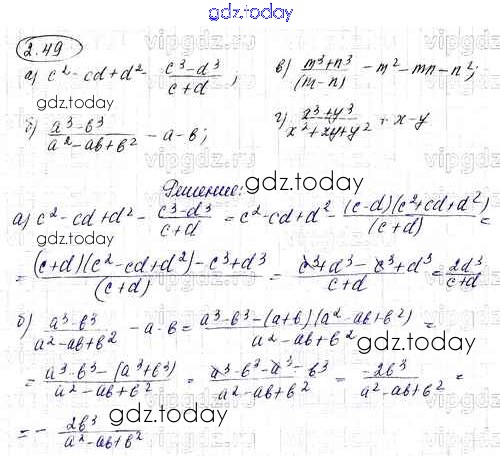 gdz.today
2.49
а) c² - cd + d² - (c³ - d³)/(c + d);
в) (m³ + n³)/(m - n) - m² - mn - n²;
gdz.today
б) (a³ - b³)/(a² - ab + b²) - a - b;
г) (x³ + y³)/(x² + xy + y²) + x - y
Решение:
gdz.today
а) c² - cd + d² - (c³ - d³)/(c + d) = c² - cd + d² - (c - d)(c² + cd + d²)/(c + d) =
= ((c + d)(c² - cd + d²) - c³ + d³)/(c + d) = (c³ + d³ - c³ + d³)/(c + d) = 2d³/(c + d)
б) (a³ - b³)/(a² - ab + b²) - a - b = (a³ - b³ - (a + b)(a² - ab + b²))/(a² - ab + b²) =
= (a³ - b³ - (a³ + b³))/(a² - ab + b²) = (a³ - b³ - a³ - b³)/(a² - ab + b²) = -2b³/(a² - ab + b²) =
= - 2b³/(a² - ab + b²)
gdz.today